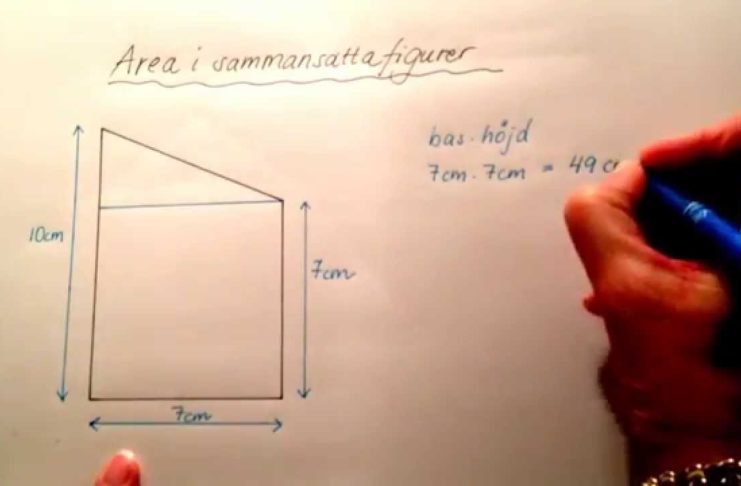 Area i sammansatta figurer
bas · höjd
7cm · 7cm = 49 c
10cm
7cm
7cm